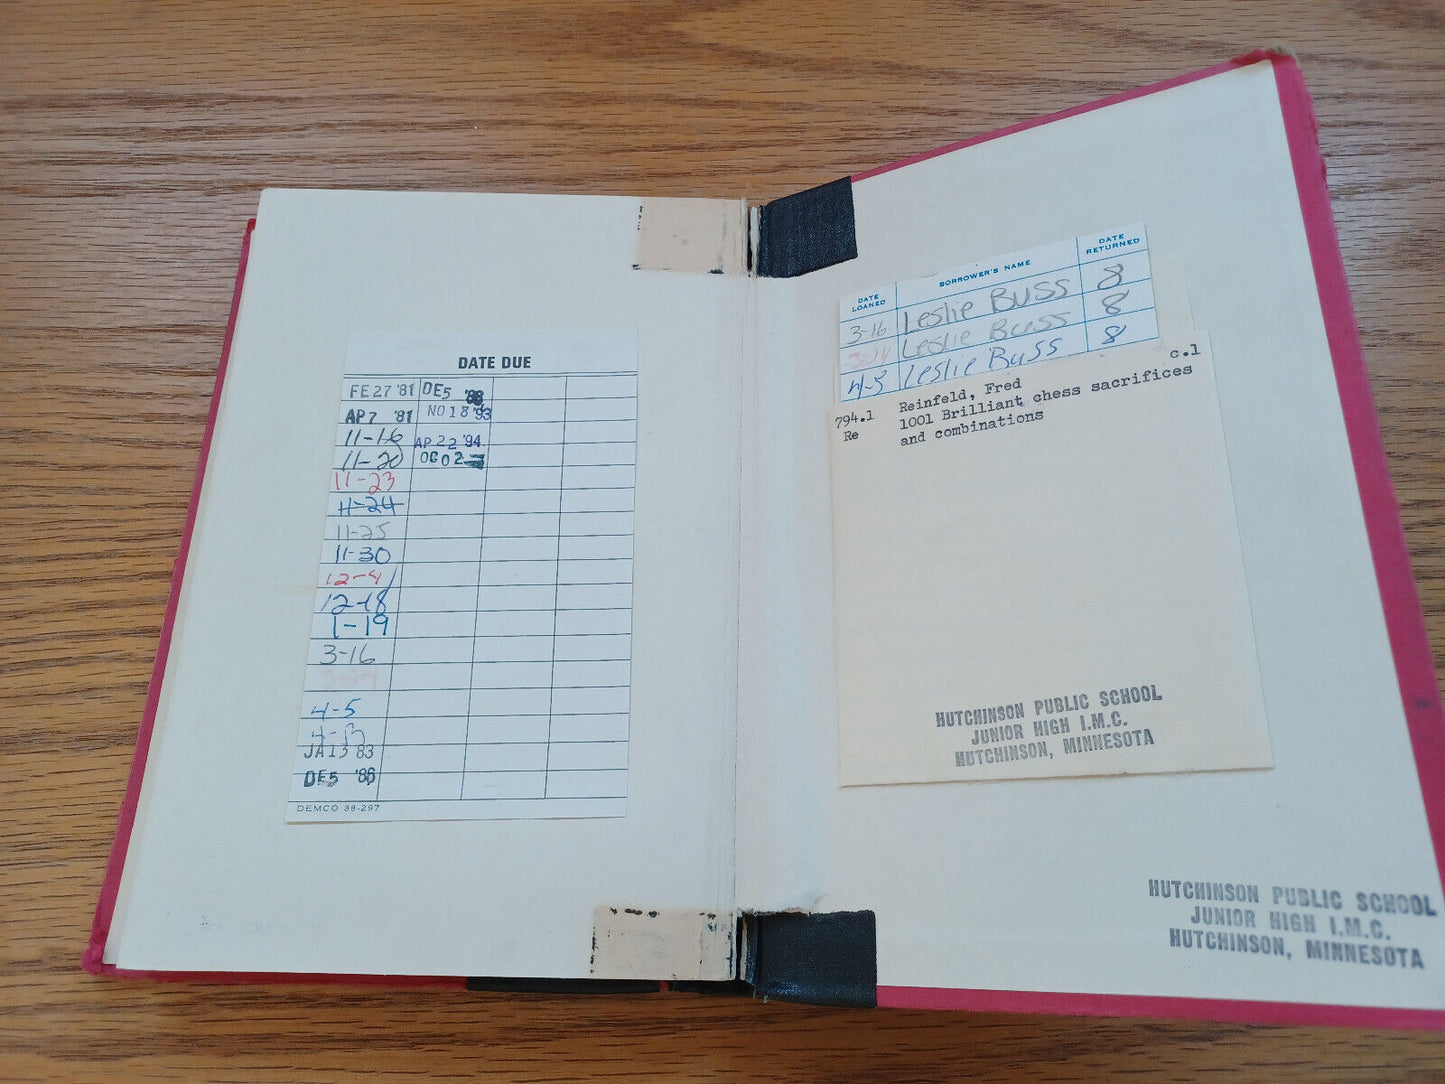 DATE DUE
FE 27 '81 DE 5 '88
AP 7 '81 NO 18 '93
11-16 AP 22 '94
11-20 OC 02
11-23
11-24
11-25
11-30
12-4
12-18
1-19
3-16
3-24
4-5
4-13
JA 13 83
DE 5 '86
DEMCO 38-297
DATE LOANED BORROWER'S NAME DATE RETURNED
3-16 Leslie Buss 8
3-24 Leslie Buss 8
4-5 Leslie Buss 8
c.1
794.1 Reinfeld, Fred
Re 1001 Brilliant chess sacrifices
and combinations
HUTCHINSON PUBLIC SCHOOL
JUNIOR HIGH I.M.C.
HUTCHINSON, MINNESOTA
HUTCHINSON PUBLIC SCHOOL
JUNIOR HIGH I.M.C.
HUTCHINSON, MINNESOTA